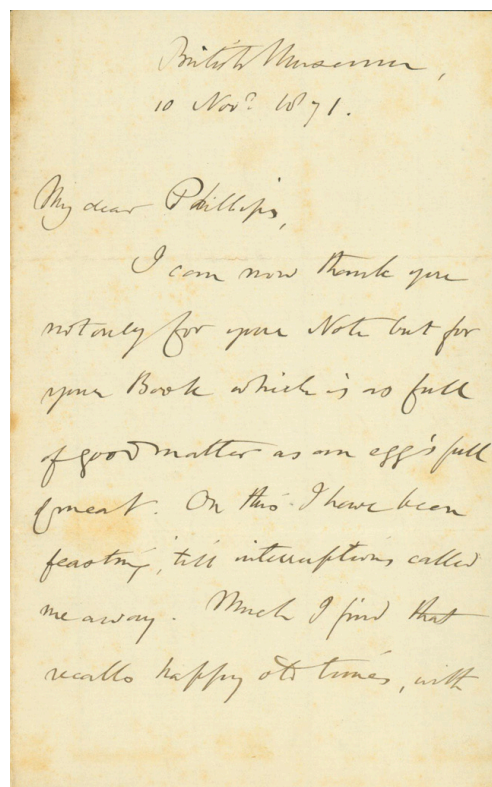 British Museum,
10 Novr. 1871.
My dear Phillips,
I can now thank you
not only for your Note but for
your Book which is as full
of good matter as an egg's full
of meat. On this I have been
feasting, 'till interruptions called
me away. Much I find that
recalls happy old times, with